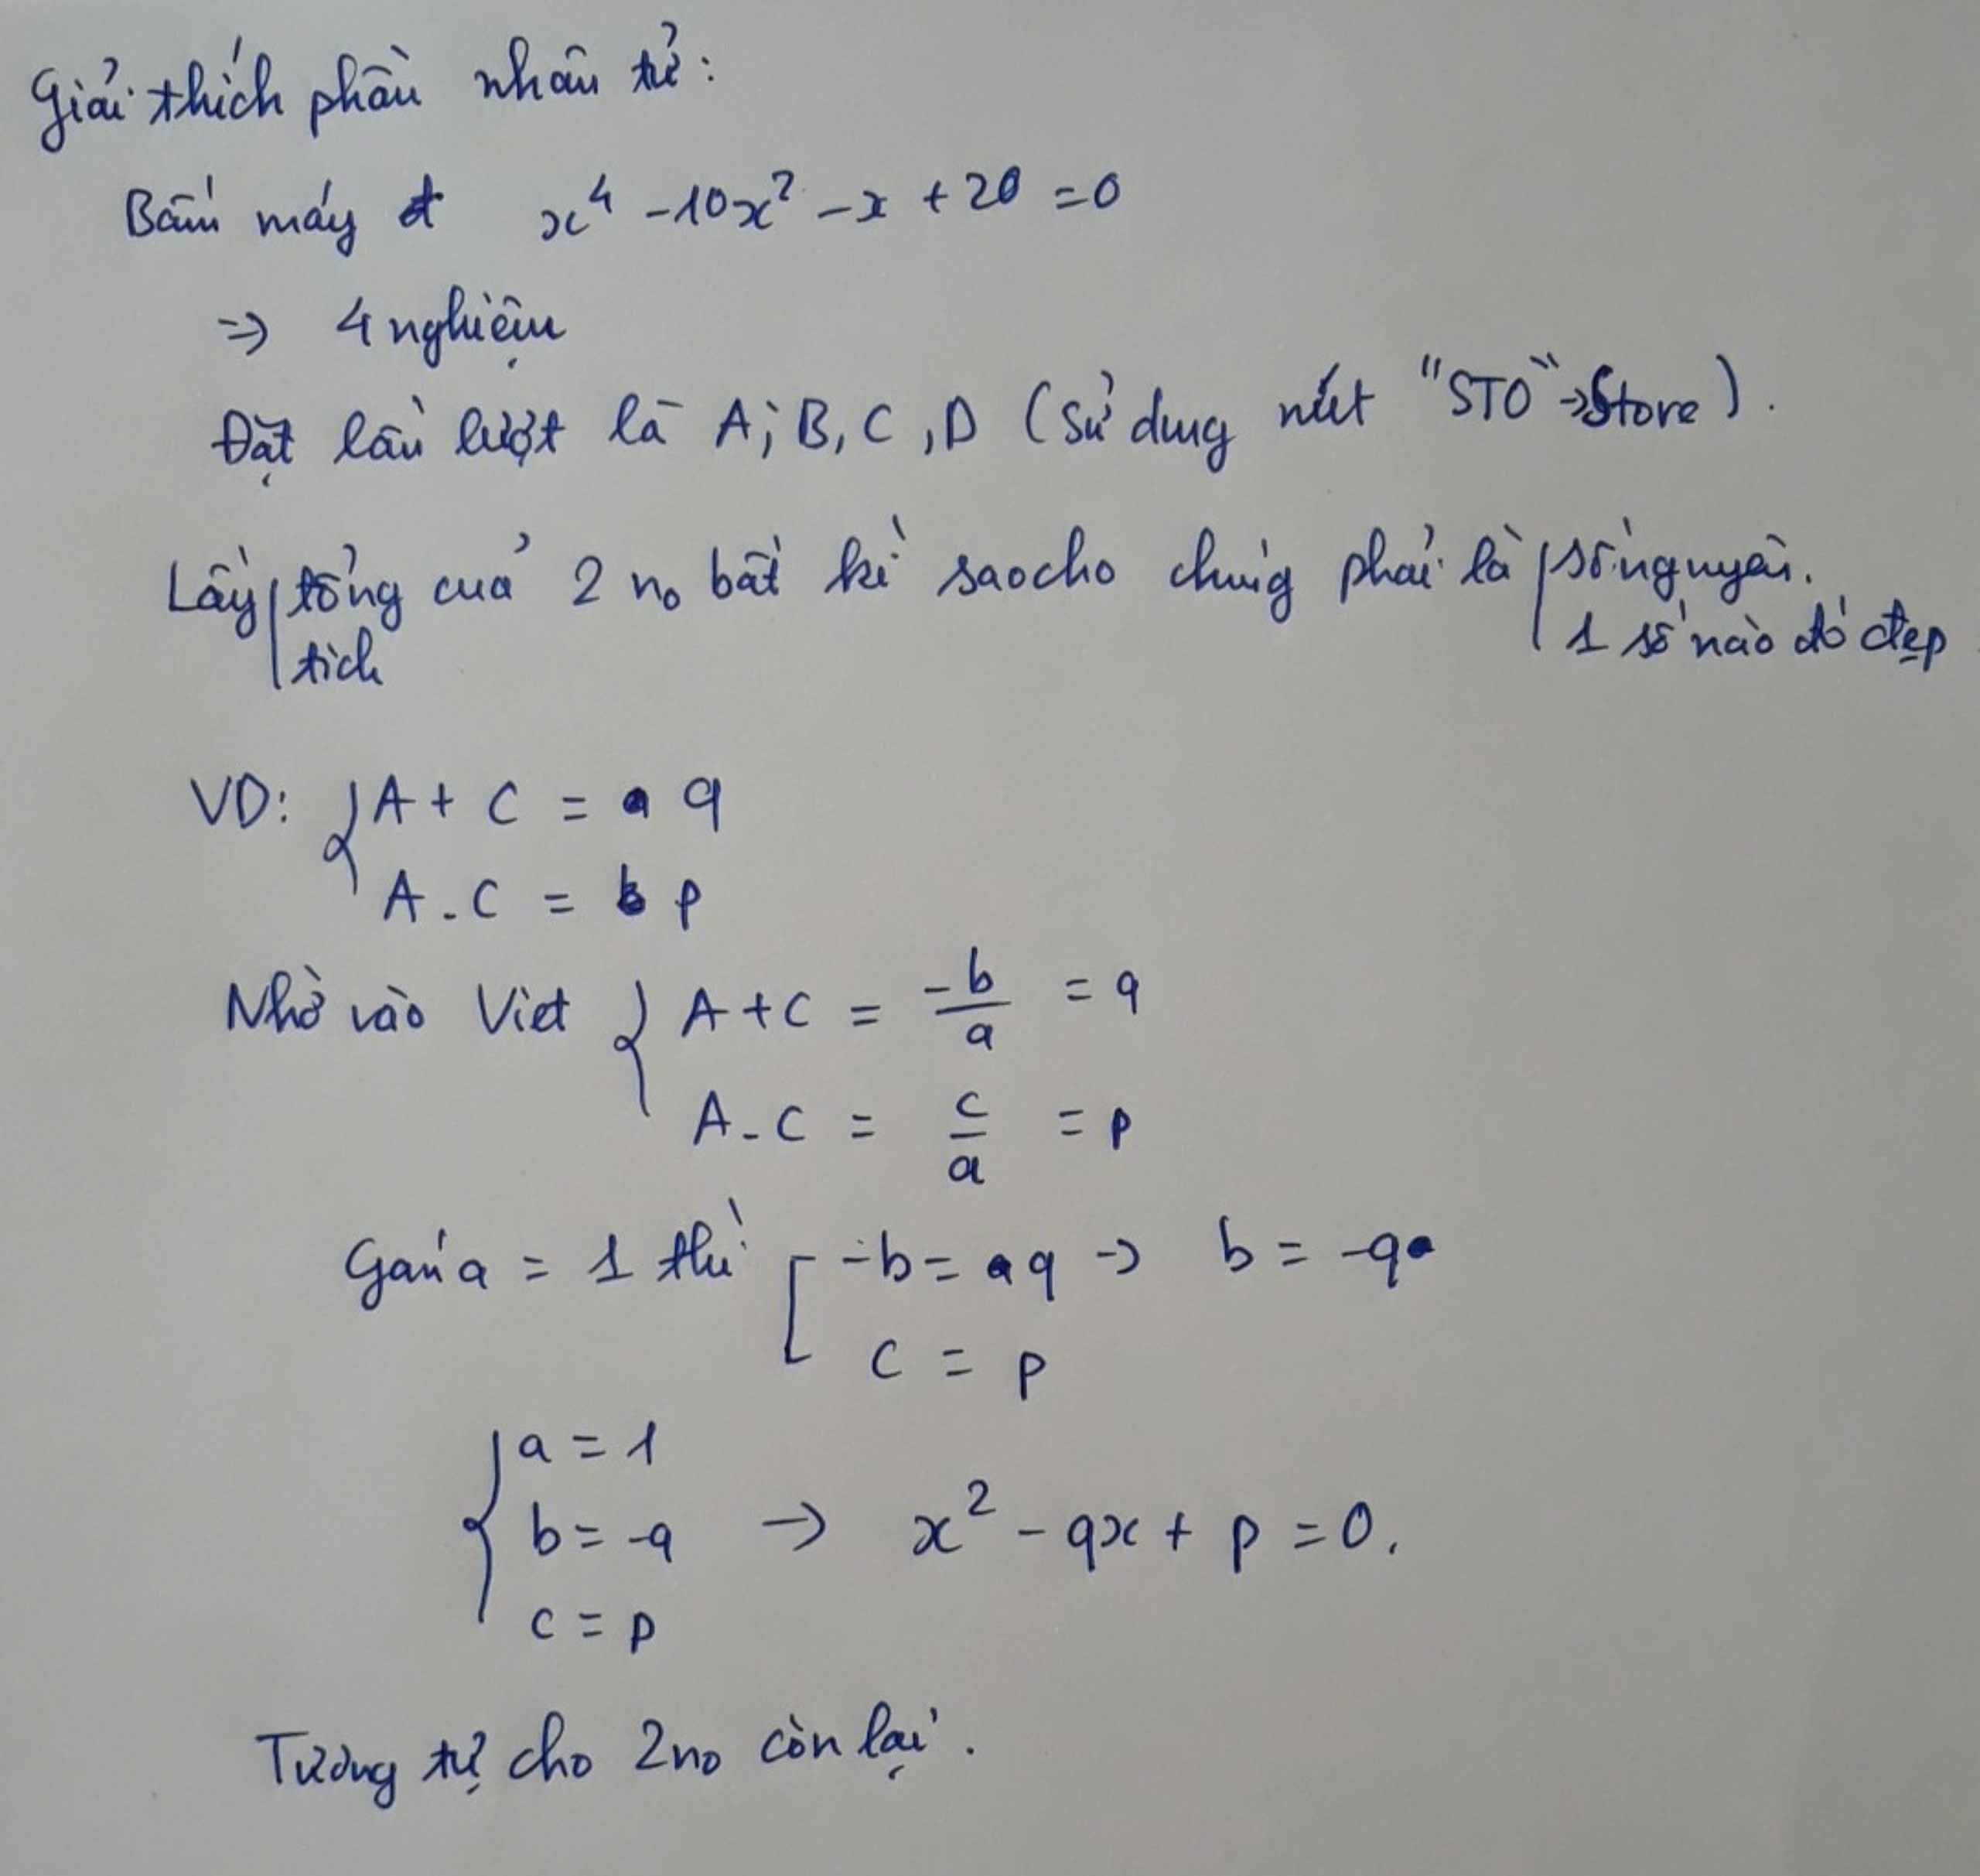 Giải thích phần nhân tử:
Bấm máy x⁴ - 10x² - x + 20 = 0
=> 4 nghiệm
Đặt lần lượt là A; B, C, D (Sử dụng nút "STO" → Store).
Lấy | tổng của 2 no bất kì sao cho chúng phải là | số nguyên.
| tích | 1 số nào đó đẹp
VD: { A + C = q
A . C = p
Nhờ vào Viet { A + C = -b/a = q
A . C = c/a = p
Gán a = 1 thì [ -b = q → b = -q
c = p
{ a = 1
b = -q → x² - qx + p = 0.
c = p
Tương tự cho 2 no còn lại.